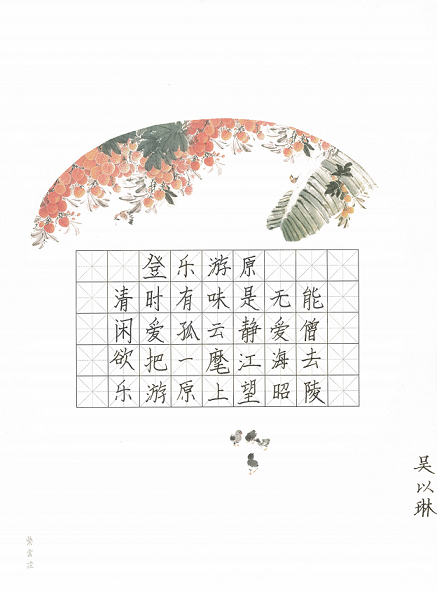 登乐游原
清时有味是无能
闲爱孤云静爱僧
欲把一麾江海去
乐游原上望昭陵
吴以琳